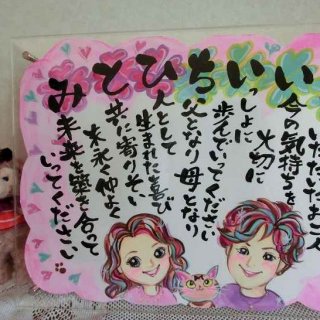 いいちひとみ
今の気持ちを
大切に
っしょに
歩んでいってください
父となり 母となり
人として
生まれた喜び
共に寄りそい
末永く仲よく
いってください